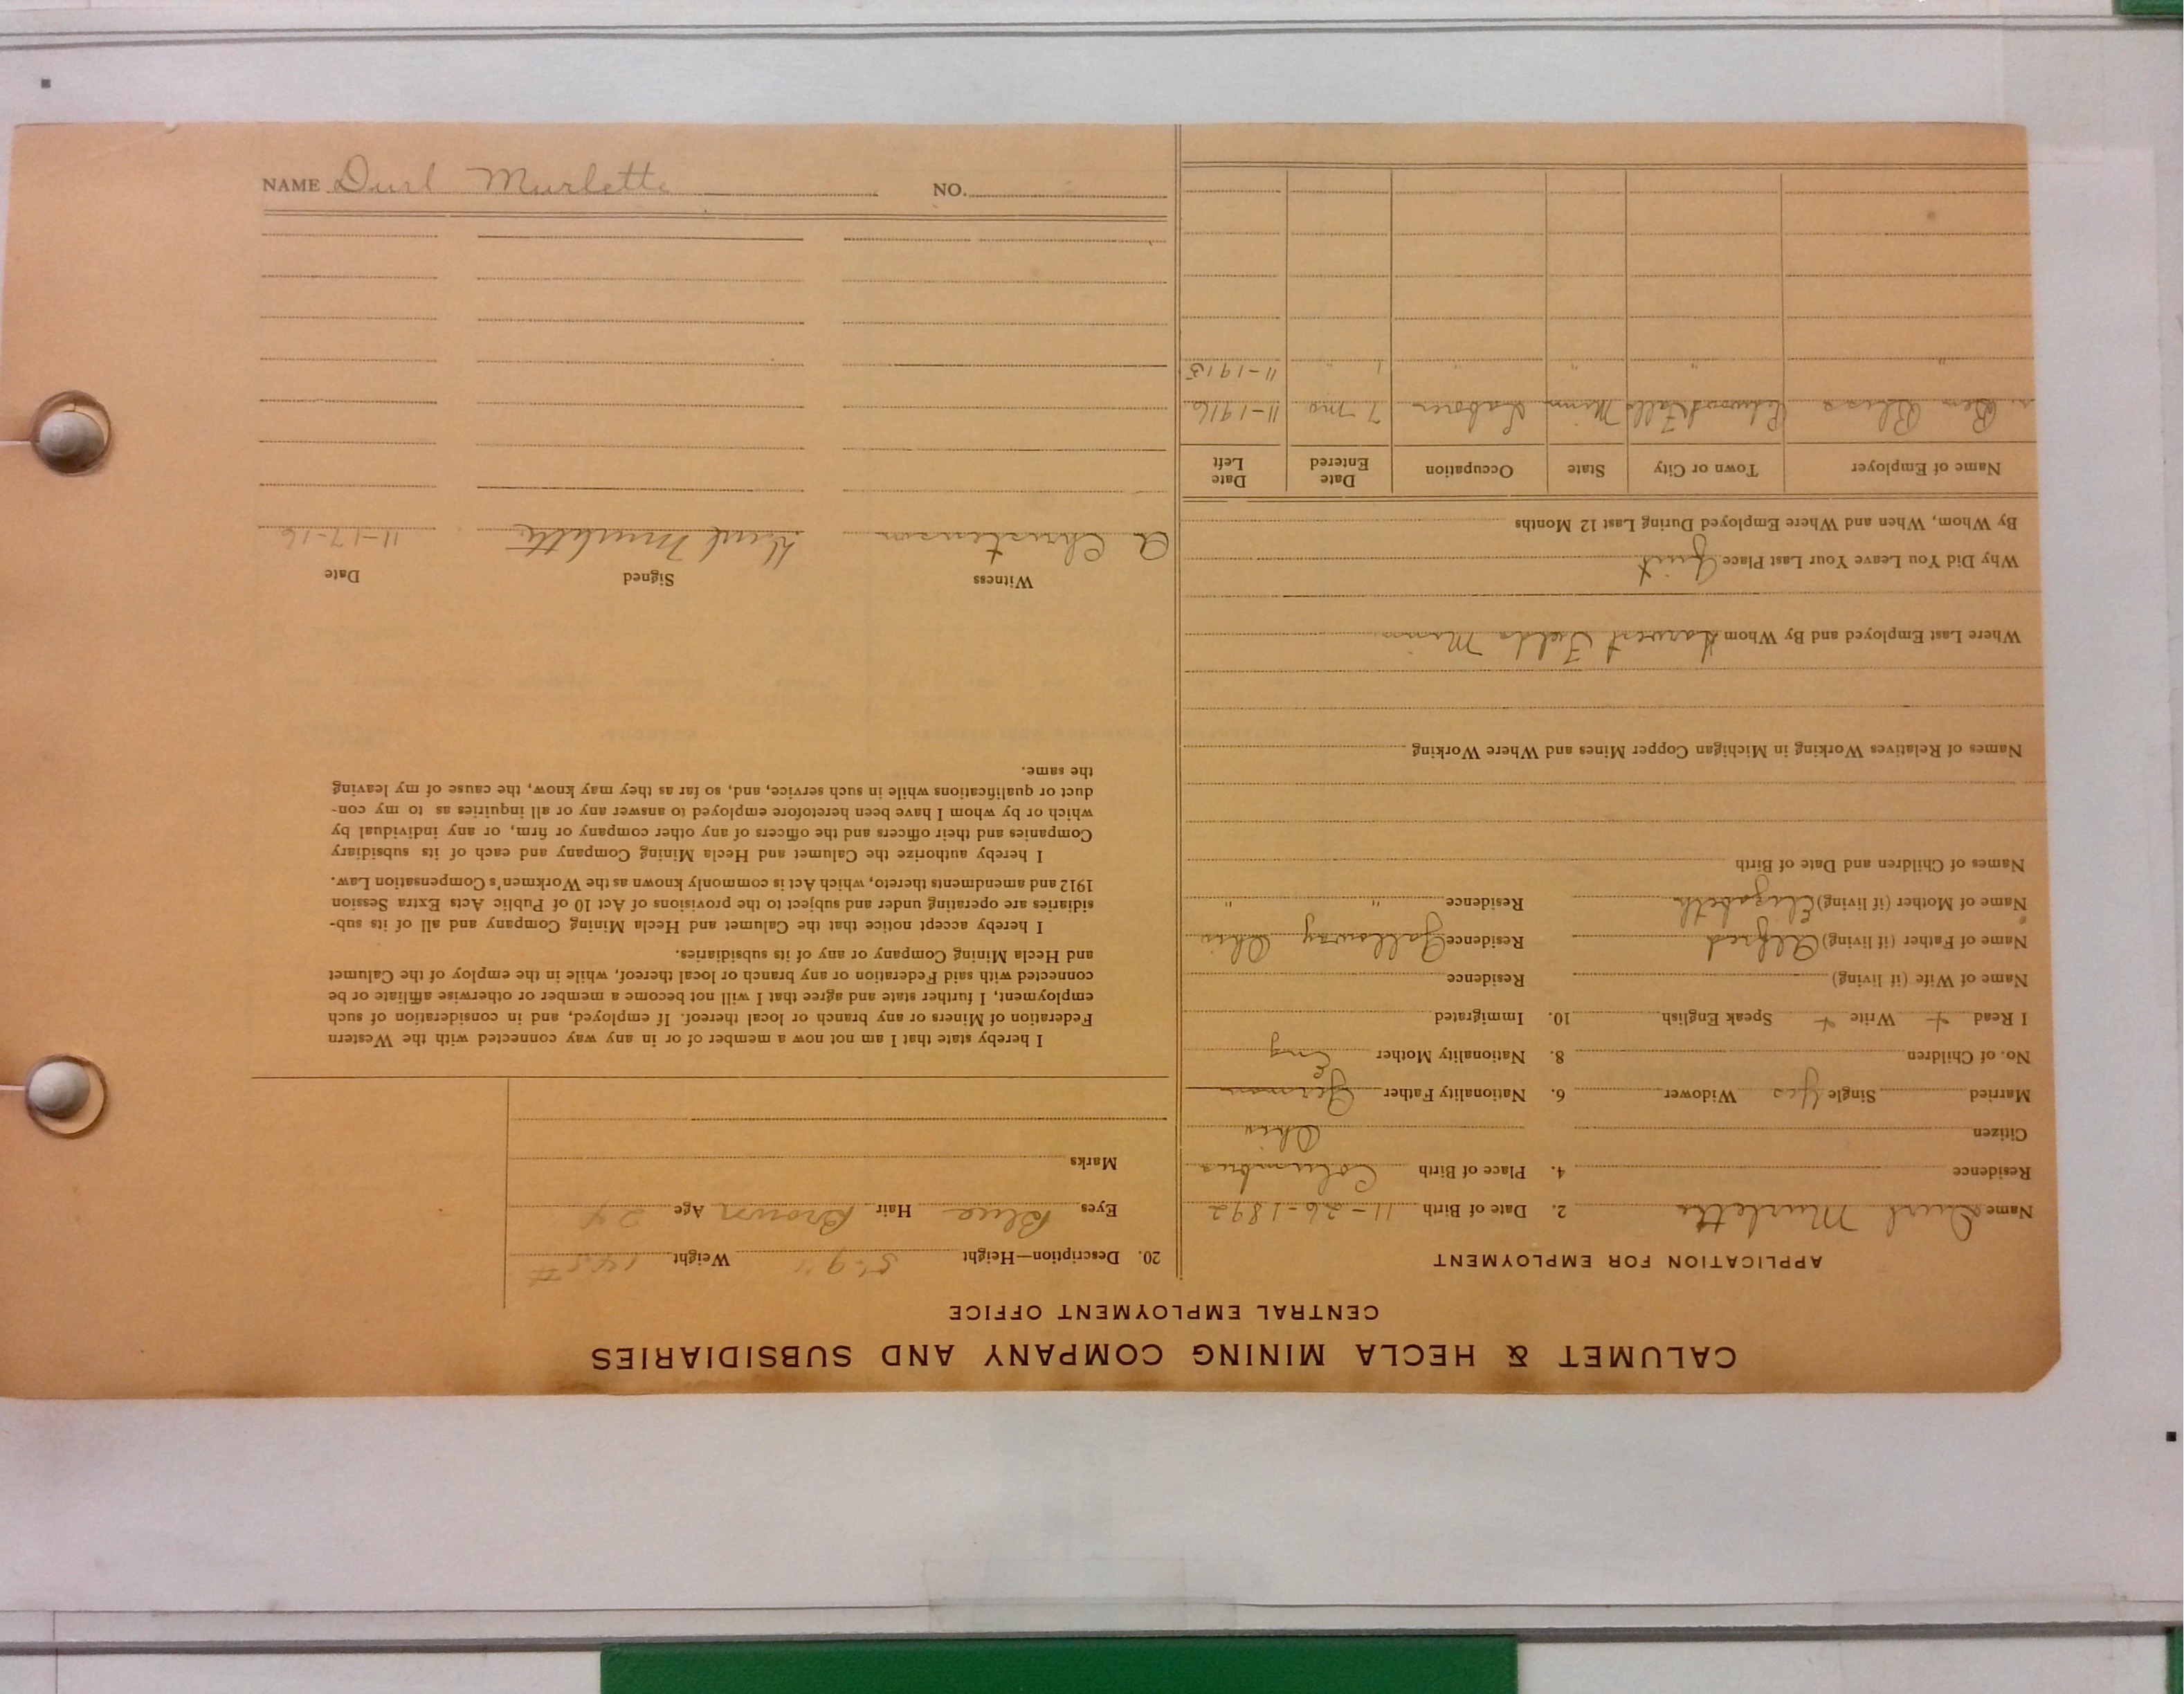 CALUMET & HECLA MINING COMPANY AND SUBSIDIARIES
CENTRAL EMPLOYMENT OFFICE
APPLICATION FOR EMPLOYMENT
Name Durl Murlette 2. Date of Birth 11-26-1892
Residence 4. Place of Birth Columbus
Citizen Ohio
Married Single Yes Widower 6. Nationality Father German
No. of Children 8. Nationality Mother Eng
I Read + Write + Speak English 10. Immigrated
Name of Wife (if living) Residence
Name of Father (if living) Alfred Residence Galloway Ohio
Name of Mother (if living) Elizabeth Residence " "
Names of Children and Date of Birth
Names of Relatives Working in Michigan Copper Mines and Where Working
Where Last Employed and By Whom Harvest Fields Minn
Why Did You Leave Your Last Place Quit
By Whom, When and Where Employed During Last 12 Months
Name of Employer Town or City State Occupation Date Entered Date Left
Ben Bliss Falls Minn Laborer 7 mo 11-1916
" " " " 1 " 11-1915
20. Description—Height 5-9" Weight 145#
Eyes Blue Hair Brown Age 24
Marks
I hereby state that I am not now a member of or in any way connected with the Western
Federation of Miners or any branch or local thereof. If employed, and in consideration of such
employment, I further state and agree that I will not become a member or otherwise affiliate or be
connected with said Federation or any branch or local thereof, while in the employ of the Calumet
and Hecla Mining Company or any of its subsidiaries.
I hereby accept notice that the Calumet and Hecla Mining Company and all of its sub-
sidiaries are operating under and subject to the provisions of Act 10 of Public Acts Extra Session
1912 and amendments thereto, which Act is commonly known as the Workmen's Compensation Law.
I hereby authorize the Calumet and Hecla Mining Company and each of its subsidiary
Companies and their officers and the officers of any other company or firm, or any individual by
which or by whom I have been heretofore employed to answer any or all inquiries as to my con-
duct or qualifications while in such service, and, so far as they may know, the cause of my leaving
the same.
Witness Signed Date
A Christenson Durl Murlette 11-17-16
NAME Durl Murlette NO.